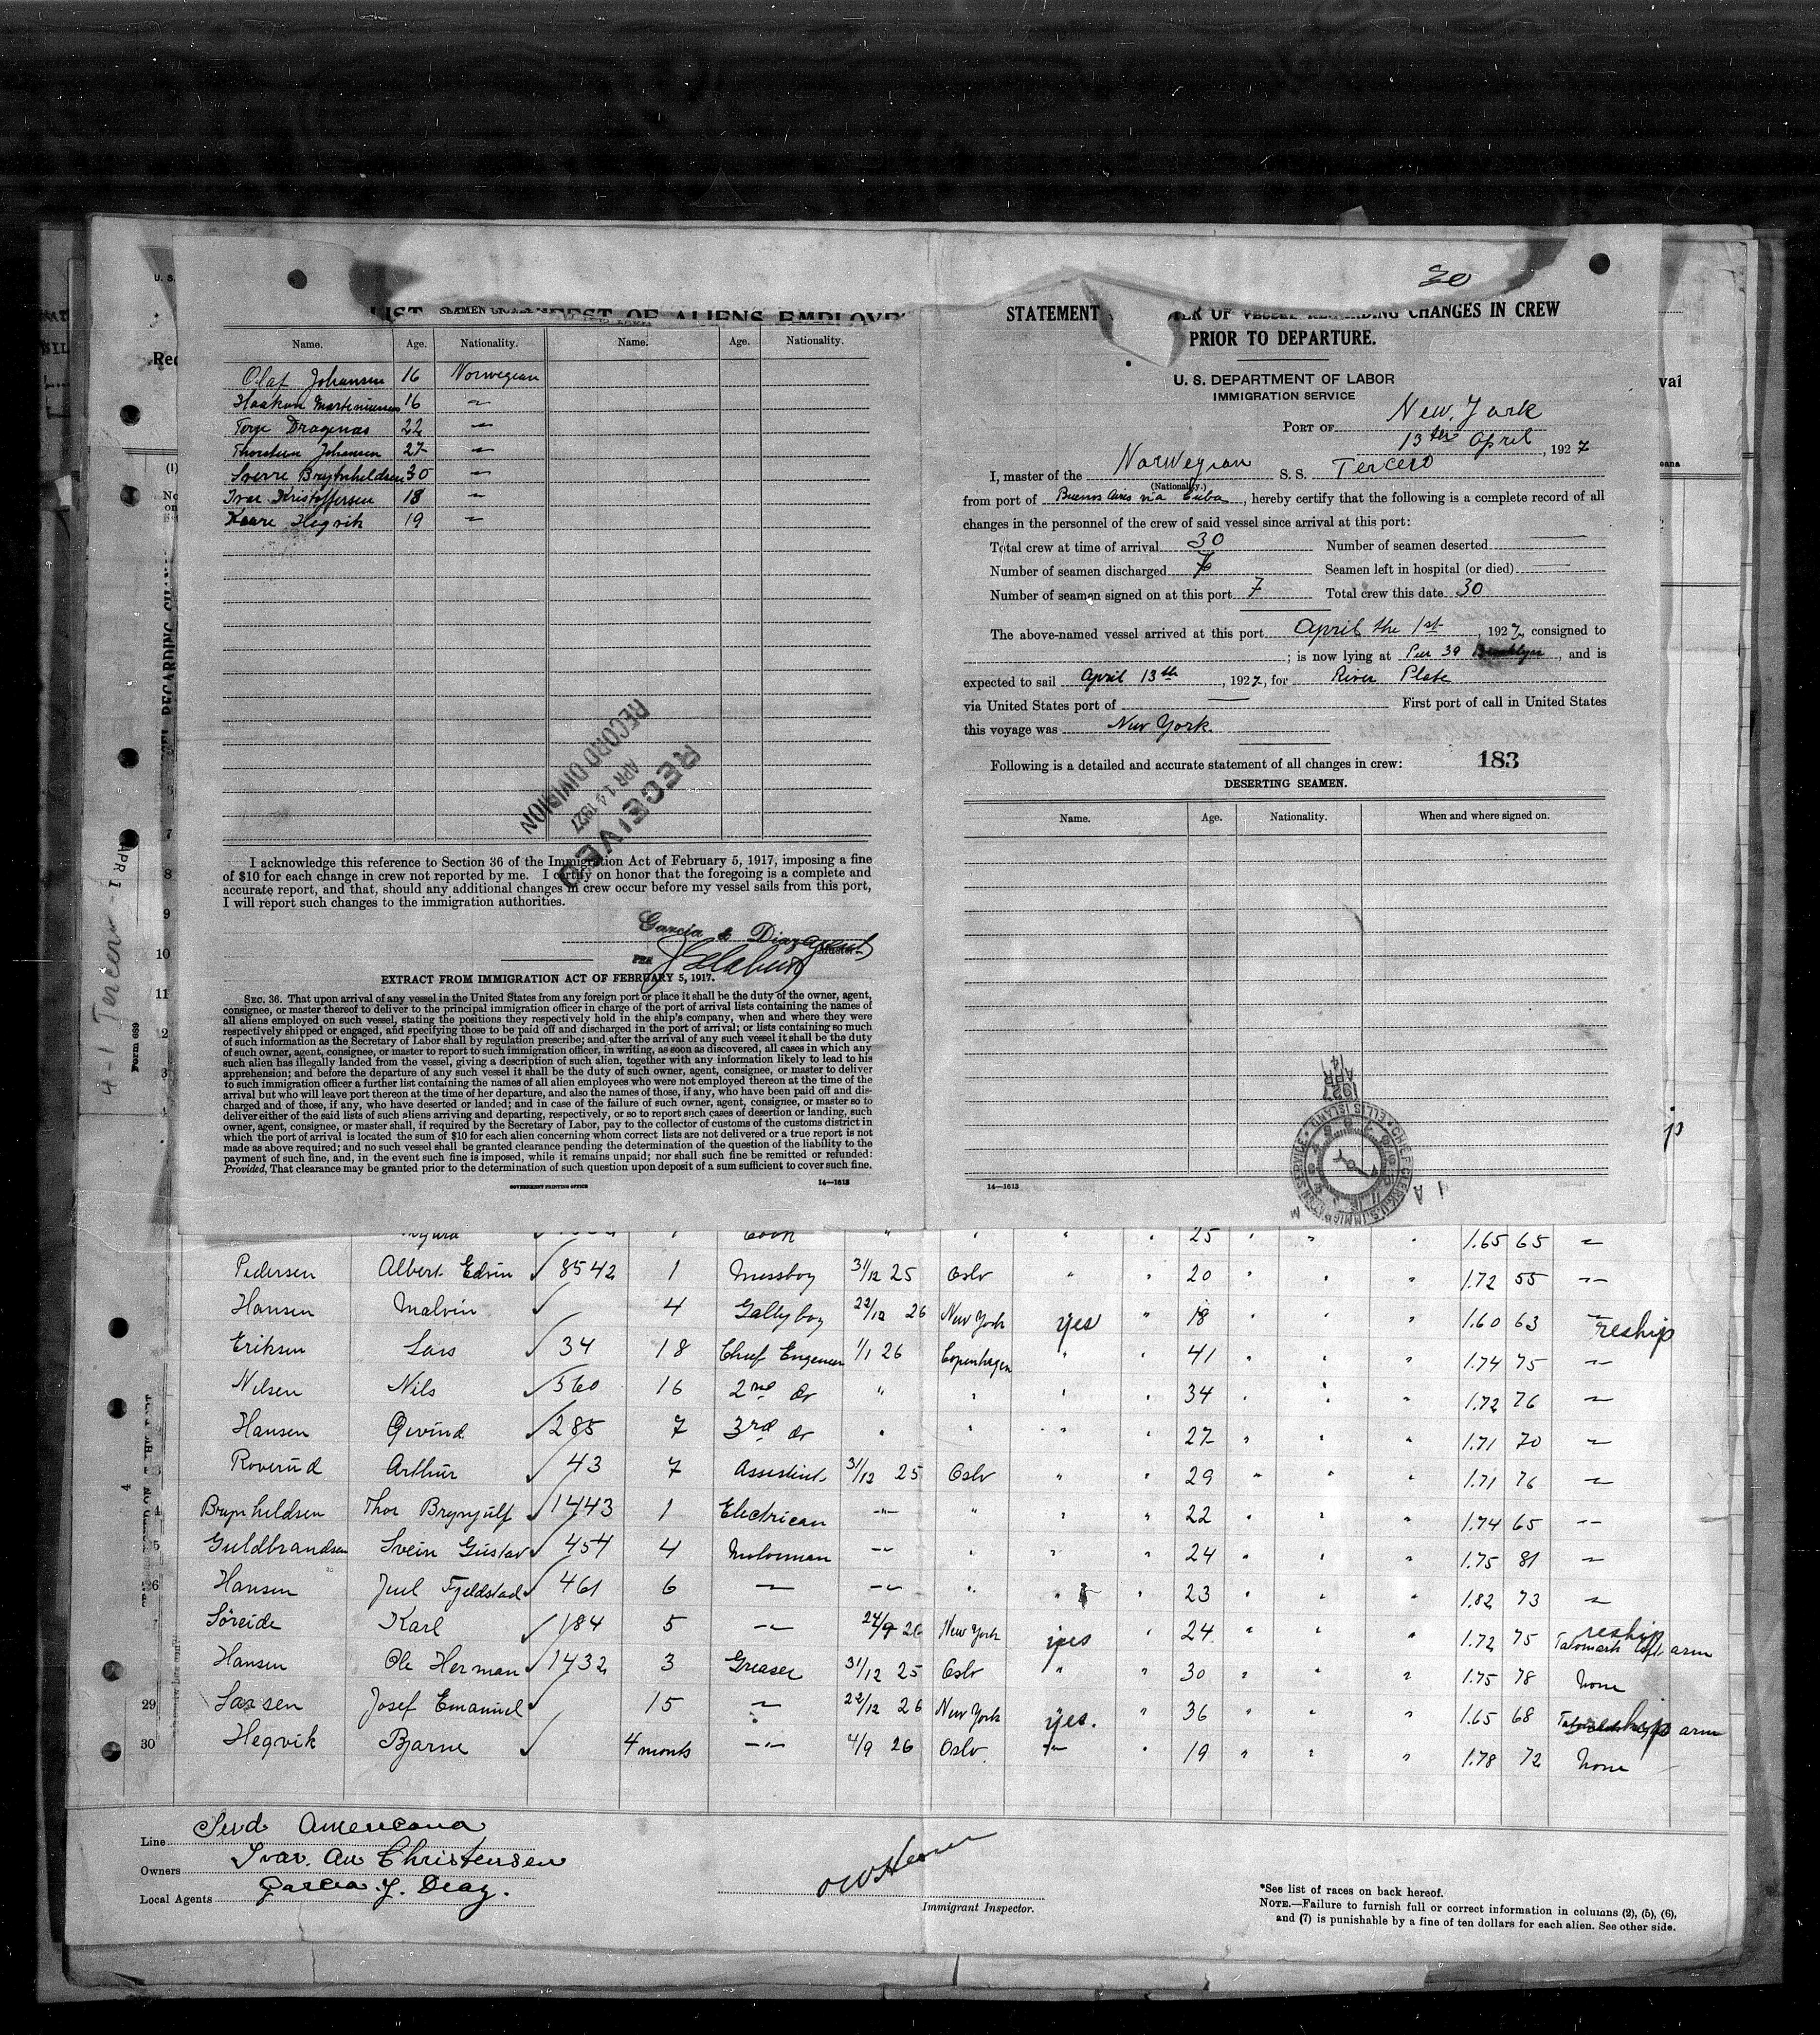 SEAMEN
LIST OF ALIENS EMPLOYE
Name. Age. Nationality. Name. Age. Nationality.
Olaf Johansen 16 Norwegian
Haakon Marteniusen 16 "
Torje Dragenas 22 "
Thorstein Johansen 27 "
Sverre Brynheldsen 30 "
Ivar Kristoffersen 18 "
Kaare Hegvik 19 "
RECEIVED
APR 14 1927
RECORD DIVISION
I acknowledge this reference to Section 36 of the Immigration Act of February 5, 1917, imposing a fine
of $10 for each change in crew not reported by me. I certify on honor that the foregoing is a complete and
accurate report, and that, should any additional changes in crew occur before my vessel sails from this port,
I will report such changes to the immigration authorities.
Garcia & Diaz Agent
Master.
PER
EXTRACT FROM IMMIGRATION ACT OF FEBRUARY 5, 1917.
SEC. 36. That upon arrival of any vessel in the United States from any foreign port or place it shall be the duty of the owner, agent,
consignee, or master thereof to deliver to the principal immigration officer in charge of the port of arrival lists containing the names of
all aliens employed on such vessel, stating the positions they respectively hold in the ship's company, when and where they were
respectively shipped or engaged, and specifying those to be paid off and discharged in the port of arrival; or lists containing so much
of such information as the Secretary of Labor shall by regulation prescribe; and after the arrival of any such vessel it shall be the duty
of such owner, agent, consignee, or master to report to such immigration officer, in writing, as soon as discovered, all cases in which any
such alien has illegally landed from the vessel, giving a description of such alien, together with any information likely to lead to his
apprehension; and before the departure of any such vessel it shall be the duty of such owner, agent, consignee, or master to deliver
to such immigration officer a further list containing the names of all alien employees who were not employed thereon at the time of the
arrival but who will leave port thereon at the time of her departure, and also the names of those, if any, who have been paid off and dis-
charged and of those, if any, who have deserted or landed; and in case of the failure of such owner, agent, consignee, or master so to
deliver either of the said lists of such aliens arriving and departing, respectively, or so to report such cases of desertion or landing, such
owner, agent, consignee, or master shall, if required by the Secretary of Labor, pay to the collector of customs of the customs district in
which the port of arrival is located the sum of $10 for each alien concerning whom correct lists are not delivered or a true report is not
made as above required; and no such vessel shall be granted clearance pending the determination of the question of the liability to the
payment of such fine, and, in the event such fine is imposed, while it remains unpaid; nor shall such fine be remitted or refunded:
Provided, That clearance may be granted prior to the determination of such question upon deposit of a sum sufficient to cover such fine.
GOVERNMENT PRINTING OFFICE 14—1613
30
STATEMENT OF VESSEL REGARDING CHANGES IN CREW
PRIOR TO DEPARTURE.
U. S. DEPARTMENT OF LABOR
IMMIGRATION SERVICE
PORT OF New York
13th April, 1927
I, master of the Norwegian S. S. Tercero
(Nationality.)
from port of Buenos Aires via Cuba, hereby certify that the following is a complete record of all
changes in the personnel of the crew of said vessel since arrival at this port:
Total crew at time of arrival 30 Number of seamen deserted —
Number of seamen discharged 7 Seamen left in hospital (or died) —
Number of seamen signed on at this port 7 Total crew this date 30
The above-named vessel arrived at this port April the 1st, 1927, consigned to
; is now lying at Pier 39 Brooklyn, and is
expected to sail April 13th, 1927, for River Plate
via United States port of — First port of call in United States
this voyage was New York.
Following is a detailed and accurate statement of all changes in crew: 183
DESERTING SEAMEN.
Name. Age. Nationality. When and where signed on.
1927 APR 14
CHIEF CLERK, U.S. IMMIGRATION SERVICE ELLIS ISLAND
14—1613
4-1 Tercero APR 1
Form 689
Cook " " " " 25 " " " 1.65 65 "
Pedersen Albert Edvin ✓ 8542 1 Messboy 31/12 25 Oslo " " 20 " " " 1.72 55 "
Hansen Malvin ✓ 4 Gallyboy 22/12 26 New York yes " 18 " " " 1.60 63 " reship
Eriksen Lars ✓ 34 18 Chief Engeneer 1/1 26 Copenhagen " " 41 " " " 1.74 75 "
Nilsen Nils ✓ 560 16 2nd Do " " " " 34 " " " 1.72 76 "
Hansen Øivind ✓ 285 7 3rd Do " " " " 27 " " " 1.71 70 "
Roverud Arthur ✓ 43 7 Assistent 31/12 25 Oslo " " 29 " " " 1.71 76 "
Brynheldsen Thor Brynjulf ✓ 1443 1 Electrican " " " " 22 " " " 1.74 65 "
Guldbrandsen Svein Gustav ✓ 454 4 Motorman " " " " 24 " " " 1.75 81 "
26 Hansen Juel Fjeldstad ✓ 461 6 " " " " " 23 " " " 1.82 73 "
Söreide Karl ✓ 184 5 " 24/9 26 New York yes " 24 " " " 1.72 75 reship Tatomark left arm
Hansen Ole Herman ✓ 1432 3 Greaser 31/12 25 Oslo " " 30 " " " 1.75 78 None
29 Larsen Josef Emanuel ✓ 15 " 22/12 26 New York yes. " 36 " " " 1.65 68 reship arm
30 Hegvik Bjarne ✓ 4 monts " 4/9 26 Oslo. " " 19 " " " 1.78 72 None
Line Sud Americana
Owners Ivar. An Christensen
Local Agents Garcia. y. Diaz.
Immigrant Inspector.
*See list of races on back hereof.
NOTE.—Failure to furnish full or correct information in columns (2), (5), (6),
and (7) is punishable by a fine of ten dollars for each alien. See other side.